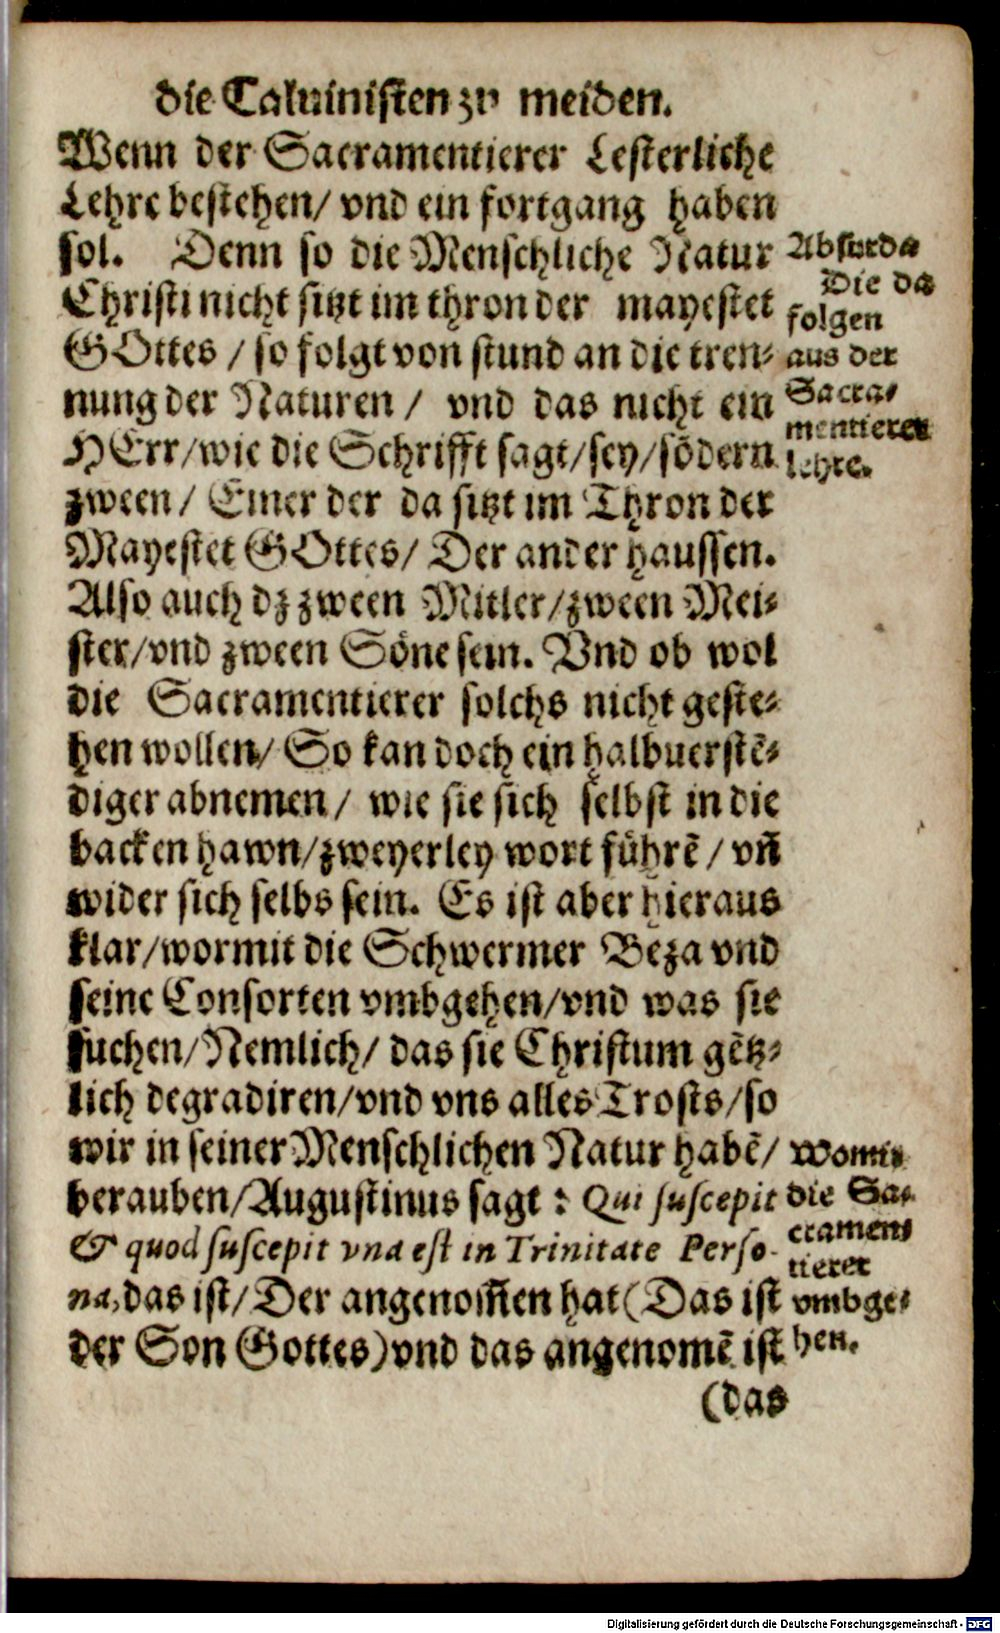 die Caluinisten zu meiden.
Wenn der Sacramentierer Lesterliche
Lehre bestehen/ vnd ein fortgang haben
sol. Denn so die Menschliche Natur
Christi nicht sitzt im thron der mayestet
GOttes / so folgt von stund an die tren-
nung der Naturen / vnd das nicht ein
HErr/wie die Schrifft sagt/sey/sõdern
zween/ Einer der da sitzt im Thron der
Mayestet GOttes/ Der ander haussen.
Also auch dz zween Mitler/zween Mei-
ster/vnd zween Söne sein. Vnd ob wol
die Sacramentierer solchs nicht geste-
hen wollen/ So kan doch ein halbuerstẽ-
diger abnemen/ wie sie sich selbst in die
backen hawn/zweyerley wort führẽ / vñ
wider sich selbs sein. Es ist aber hieraus
klar/wormit die Schwermer Beza vnd
seine Consorten vmbgehen/vnd was sie
suchen/Nemlich/ das sie Christum gẽtz-
lich degradiren/vnd vns alles Trosts/so
wir in seiner Menschlichen Natur habẽ/
berauben/Augustinus sagt : Qui suscepit
& quod suscepit vna est in Trinitate Perso-
na, das ist/ Der angenom̃en hat (Das ist
der Son Gottes) vnd das angenomẽ ist
(das
Absurda
Die da
folgen
aus der
Sacra-
mentierer
lehre.
Womit
die Sa-
cramen-
tierer
vmbge-
hen.
Digitalisierung gefördert durch die Deutsche Forschungsgemeinschaft - DFG